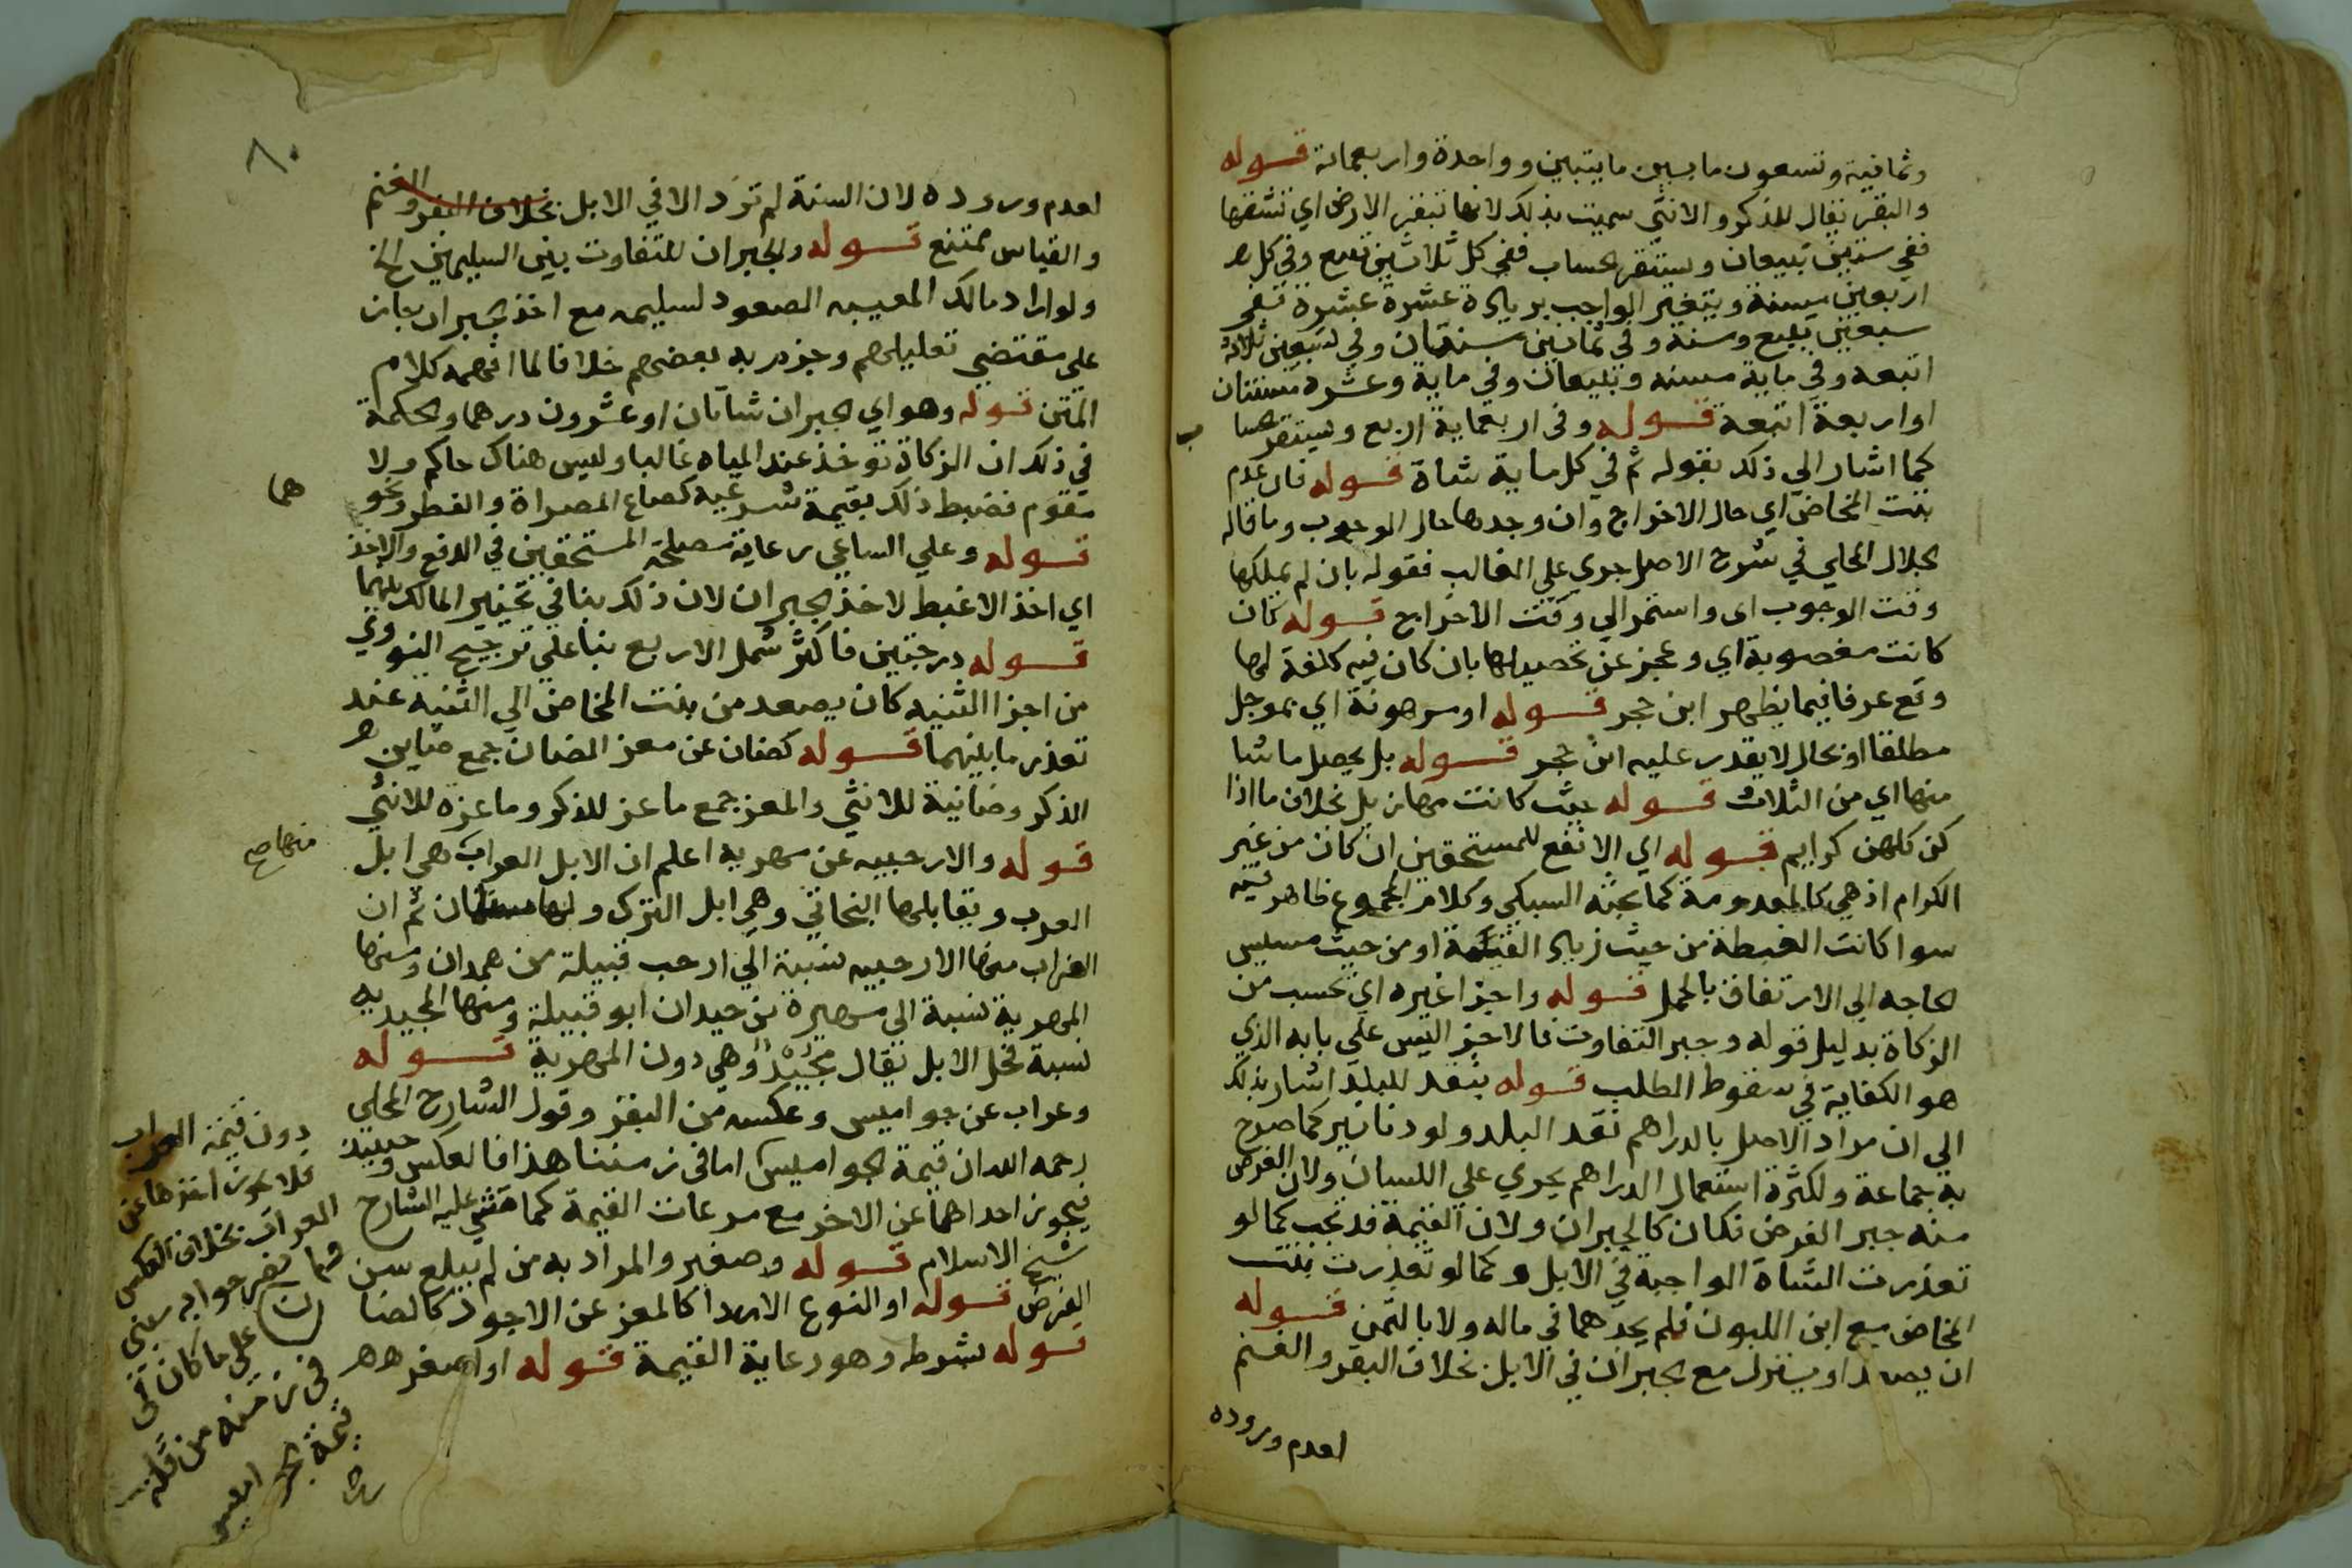 وثمانية وتسعون ما بين مايتين وواحدة واربعماية قوله
والبقر يقال للذكر والانثى سميت بذلك لانها تبقر الارض اي تشقها
ففي ستين تبيعان ويستقر الحساب ففي كل ثلاثين تبيع وفي كل
اربعين مسنة ويتغير الواجب بزيادة عشرة عشرة ففي
سبعين تبيع ومسنة وفي ثمانين مسنتان وفي تسعين ثلاثة
اتبعه وفي ماية مسنه وتبيعان وفي ماية وعشرة مسنتان
او اربعة اتبعة قوله وفي اربعماية اربع ويستقر
كما اشار الي ذلك بقوله ثم في كل ماية شاة قوله فان عدم
بنت المخاض اي حال الاخراج وان وجدها حال الوجوب وما قاله
الجلال المحلي في شرح الاصل جري علي الغالب فقوله بان لم يملكها
وقت الوجوب اى واستمر الي وقت الاخراج قوله كان
كانت مغصوبة اي وعجز عن تحصيلها بان كان فيه كلفة لها
وقع عرفا فيما يظهر ابن حجر قوله او مرهونة اي بموجل
مطلقا او بحال لا يقدر عليه ابن حجر قوله بل يحصل ما شا
منها اي من الثلاث قوله بنت كانت مهازيل بخلاف ما اذا
كن كلهن كرايم قوله اي الانفع للمستحقين ان كان من غير
الكرام اذ هي كالمعدومة كما بحثه السبكي وكلام المجموع ظاهر فيه
سوا كانت الغبطة من حيث زيادة القيمة او من حيث مسيس
الحاجه الي الارتفاق بالحمل قوله واجزا غيره اي تحسب من
الزكاة بدليل قوله وجبر التفاوت فالاجزا ليس علي بابه الذي
هو الكفاية في سقوط الطلب قوله بنقد للبلد اشار بذلك
الي ان مراد الاصل بالدراهم نقد البلد ولو دنانير كما صرح
به جماعة ولكثرة استعمال الدراهم يجري علي اللسان ولان الغرض
منه جبر الفرض فكان كالجبران ولان القيمة قد تجب كما لو
تعذرت الشاة الواجبة في الابل وكما لو تعذرت بنت
المخاض مع ابن اللبون فلم يجدهما في ماله ولا بالثمن قوله
ان يصعد او ينزل مع الجبران في الابل بخلاف البقر والغنم
لعدم وروده
٨٠
لعدم وروده لان السنة لم ترد الا في الابل بخلاف البقر والغنم
والقياس ممتنع قوله والجبران للتفاوت بين السليمين الخ
ولو اراد مالك المعيبه الصعود لسليمه مع اخذ الجبران جاز
علي مقتضي تعليلهم وجزم به بعضهم خلافا لما افهمه كلام
المتن قوله وهو اي الجبران شاتان او عشرون درهما والحكمة
في ذلك ان الزكاة توخذ عند المياه غالبا وليس هناك حاكم ولا
مقوم فضبط ذلك بقيمة شرعيه كصاع المصراة والفطر ونحو
هما
قوله وعلي الساعي رعاية مصلحة المستحقين في الدفع والاخذ
اي اخذ الاغبط لا خذ الجبران لان ذلك ينافي تخيير المالك بينهما
قوله درجتين فاكثر شمل الاربع بنا علي ترجيح النووي
من اجزا الثنيه كان يصعد من بنت المخاض الي الثنيه عند
تعذر ما بينهما قوله كضان عن معز الضان جمع ضاين
الذكر وضانية للانثي والمعز جمع ماعز للذكر وماعزة للانثي
قوله والارحبيه عن مهريه اعلم ان الابل العراب هي ابل
العرب ويقابلها البخاتي وهي ابل الترك ولها سنامان ثم ان
العراب منها الارحبيه نسبة الي ارحب قبيلة من همدان ومنها
المهرية نسبة الي مهرة بن حيدان ابو قبيلة ومنها المجيديه
نسبة لفحل الابل يقال مجيد وهي دون المهرية قوله
وعراب عن جواميس وعكسه من البقر وقول الشارح المحلي
رحمه الله ان قيمة الجواميس اما في زمننا هذا فالعكس وحينيذ
فيجوز احداهما عن الاخر مع مرعات القيمة كما مشي عليه الشارح
شيخ الاسلام قوله وصغير والمراد به من لم يبلغ سن
الفرض قوله او النوع الاردا كالمعز عن الاجود كالضا
قوله بشرط وهو رعاية القيمة قوله او اصغر
دون قيمة العراب
فلا يجوز اخذها عن
العراب بخلاف العكس
جوابه
علي ما كان في
في زمنه من قلة
قيمة الجواميس